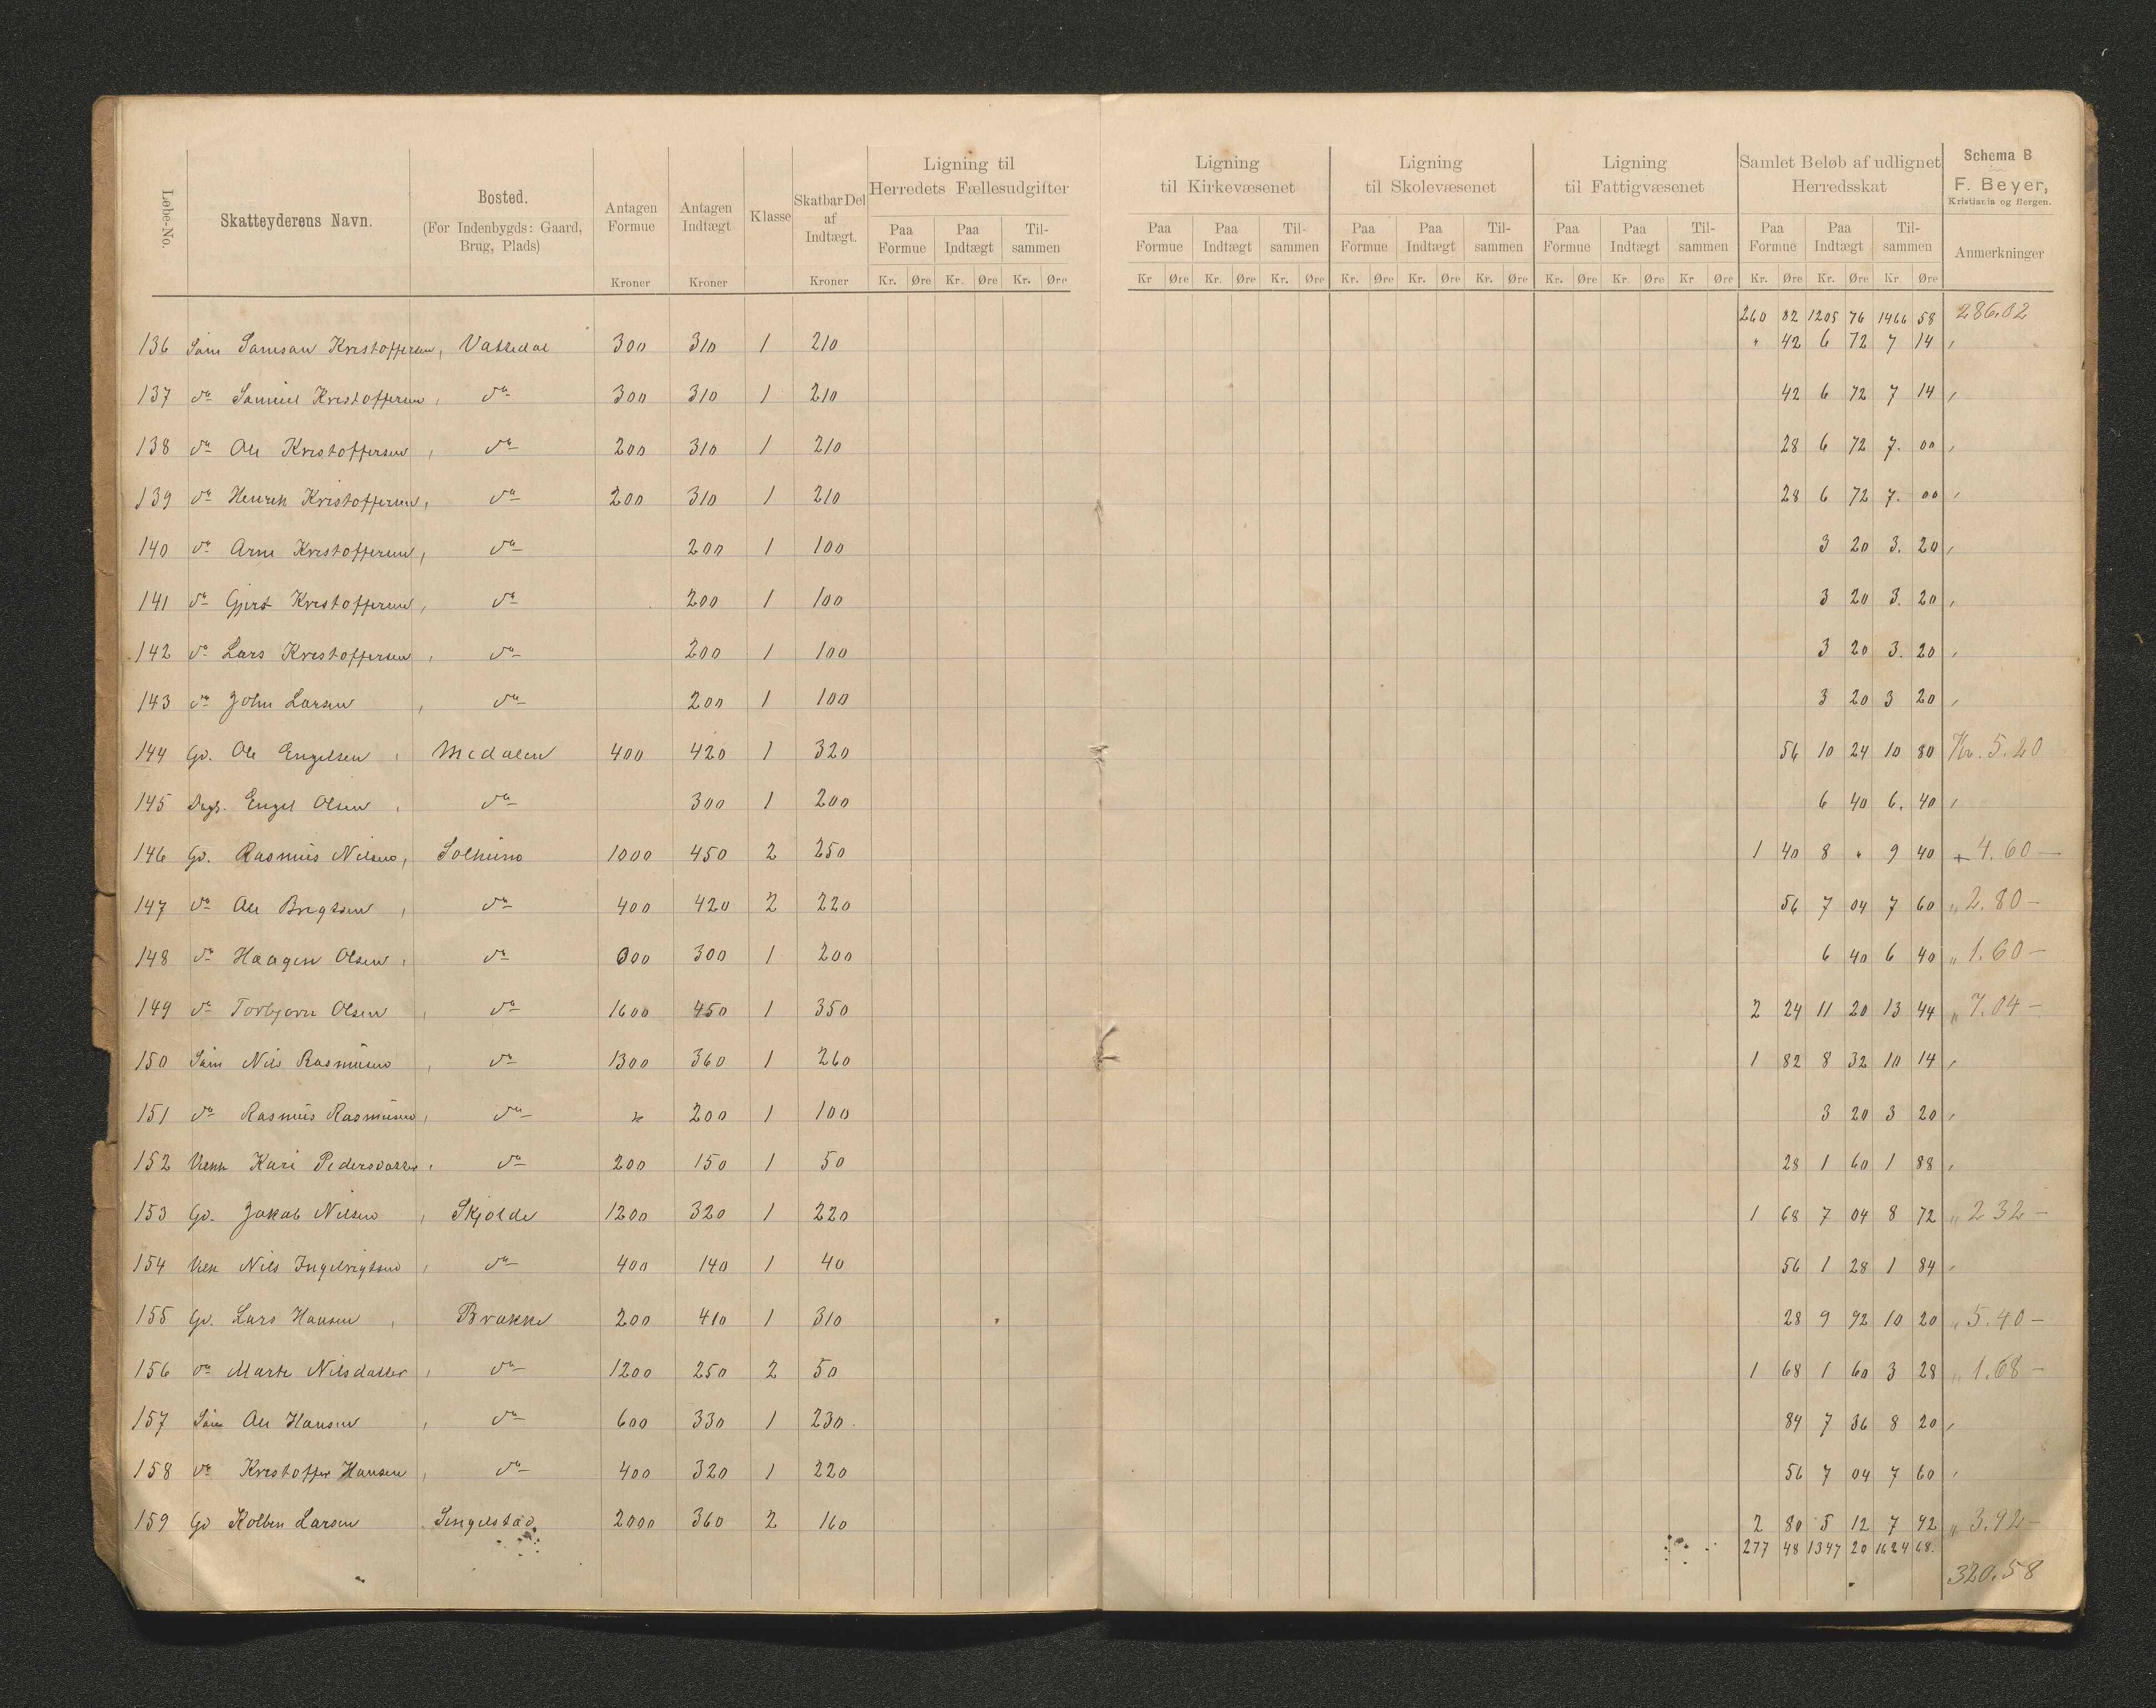 Løbe-No.
Skatteyderens Navn.
Bosted.
(For Indenbygds: Gaard, Brug, Plads)
Antagen Formue
Kroner
Antagen Indtægt
Kroner
Klasse
Skatbar Del af Indtægt.
Kroner
Ligning til Herredets Fællesudgifter
Paa Formue Paa Indtægt Tilsammen
Kr. Øre Kr. Øre Kr. Øre
Ligning til Kirkevæsenet
Paa Formue Paa Indtægt Tilsammen
Kr Øre Kr. Øre Kr. Øre
Ligning til Skolevæsenet
Paa Formue Paa Indtægt Tilsammen
Kr. Øre Kr. Øre Kr. Øre
Ligning til Fattigvæsenet
Paa Formue Paa Indtægt Tilsammen
Kr. Øre Kr. Øre Kr Øre
Samlet Beløb af udlignet Herredsskat
Paa Formue Paa Indtægt Tilsammen
Kr. Øre Kr. Øre Kr. Øre
Schema B
F. Beyer,
Kristiania og Bergen.
Anmerkninger
260 82 1205 76 1466 58 286.02
136 Søn Samson Kristoffersen, Vatledal 300 310 1 210 " 42 6 72 7 14 ,
137 do Samuel Kristoffersen, do 300 310 1 210 42 6 72 7 14 ,
138 do Ole Kristoffersen, do 200 310 1 210 28 6 72 7. 00 ,
139 do Henrek Kristoffersen, do 200 310 1 210 28 6 72 7. 00 ,
140 do Arne Kristoffersen, do 200 1 100 3 20 3. 20 ,
141 do Gjert Kristoffersen, do 200 1 100 3 20 3. 20 ,
142 do Lars Kristoffersen, do 200 1 100 3 20 3. 20 ,
143 do John Larsen, do 200 1 100 3 20 3 20 ,
144 Gd. Ole Engelsen, Medalen 400 420 1 320 56 10 24 10 80 Kr. 5.20
145 Engel Olsen, do 300 1 200 6 40 6. 40 ,
146 Gd. Rasmus Nilsen, Solheim 1000 450 2 250 1 40 8 " 9 40 + 4.60 —
147 do Ole Brigtsen, do 400 420 2 220 56 7 04 7 60 " 2.80 —
148 do Haagen Olsen, do 000 300 1 200 6 40 6 40 " 1.60 —
149 do Torbjørn Olsen, do 1600 450 1 350 2 24 11 20 13 44 " 7.04 —
150 Søn Nils Rasmusen, do 1300 360 1 260 1 82 8 32 10 14 ,
151 do Rasmus Rasmusen, do " 200 1 100 3 20 3 20 ,
152 Kari Pedersdatter, do 200 150 1 50 28 1 60 1 88 ,
153 Gd. Jakob Nilsen, Skjolde 1200 320 1 220 1 68 7 04 8 72 " 2 32 —
154 Nils Ingebrigtsen, do 400 140 1 40 56 1 28 1 84 ,
155 Gd. Lars Hansen, Brakke 200 410 1 310 28 9 92 10 20 " 5.40 —
156 do Marte Nilsdatter, do 1200 250 2 50 1 68 1 60 3 28 " 1.68 —
157 Søn Ole Hansen, do 600 330 1 230 84 7 36 8 20 ,
158 do Kristoffer Hansen, do 400 320 1 220 56 7 04 7 60 ,
159 Gd Kolben Larsen Singelstad 2000 360 2 160 2 80 5 12 7 92 " 3.92 —
277 48 1347 20 1624 68.
320.58